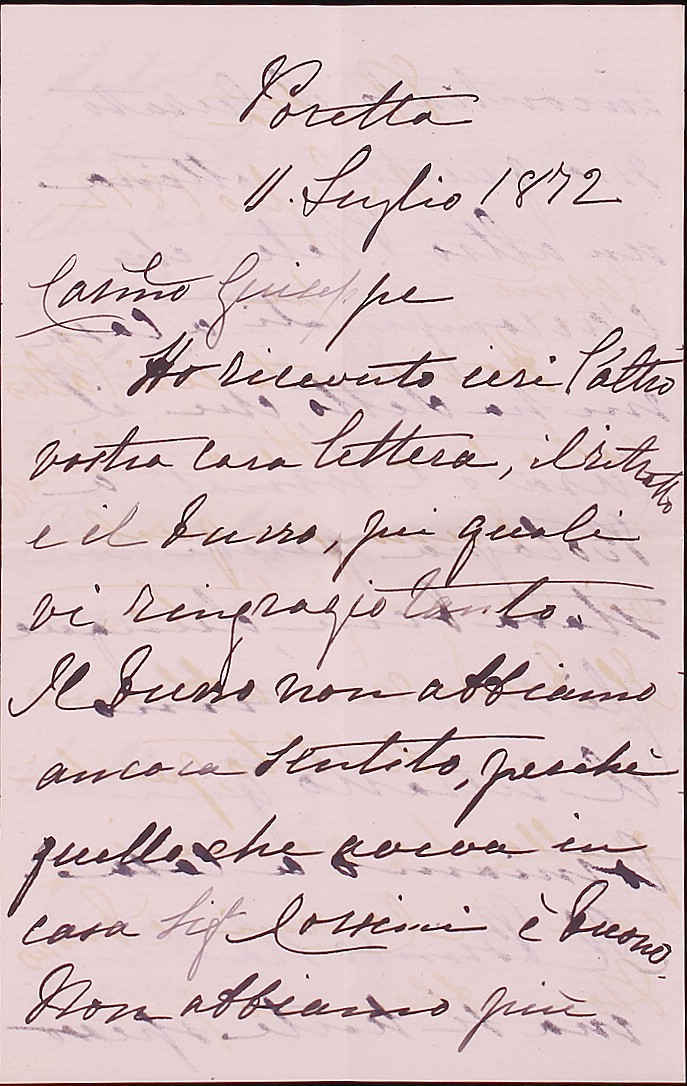 Poretta
11. Luglio 1872
Carmo Giuseppe
Ho ricevuto ieri l'altro
vostra cara lettera, il ritratto
e il burro, pei quali
vi ringragio tanto.
Il burro non abbiamo
ancora sentito, perchè
quello che aveva in
casa Sigr è buono.
Non abbiamo più